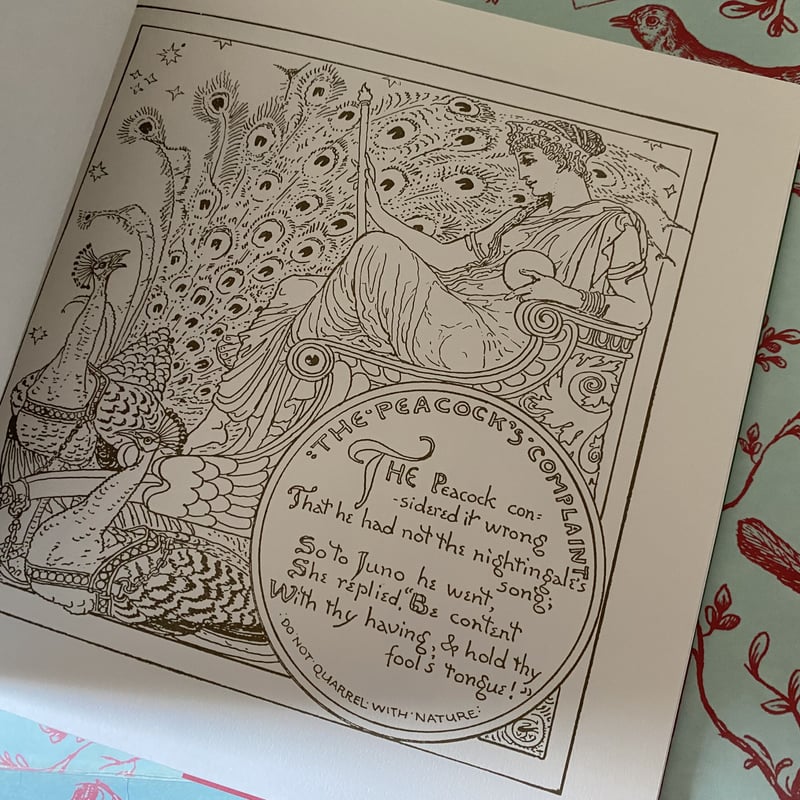 :THE·PEACOCK'S·COMPLAINT:
THE Peacock con=
-sidered it wrong
That he had not the nightingale's
song;
So to Juno he went,
She replied, "Be content
With thy having, & hold thy
fool's tongue!"
:DO NOT QUARREL WITH NATURE: